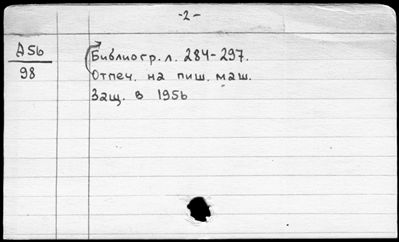 -2-
А56
98
Библиогр. л. 284-297.
Отпеч. на пиш. маш.
Защ. в 1956